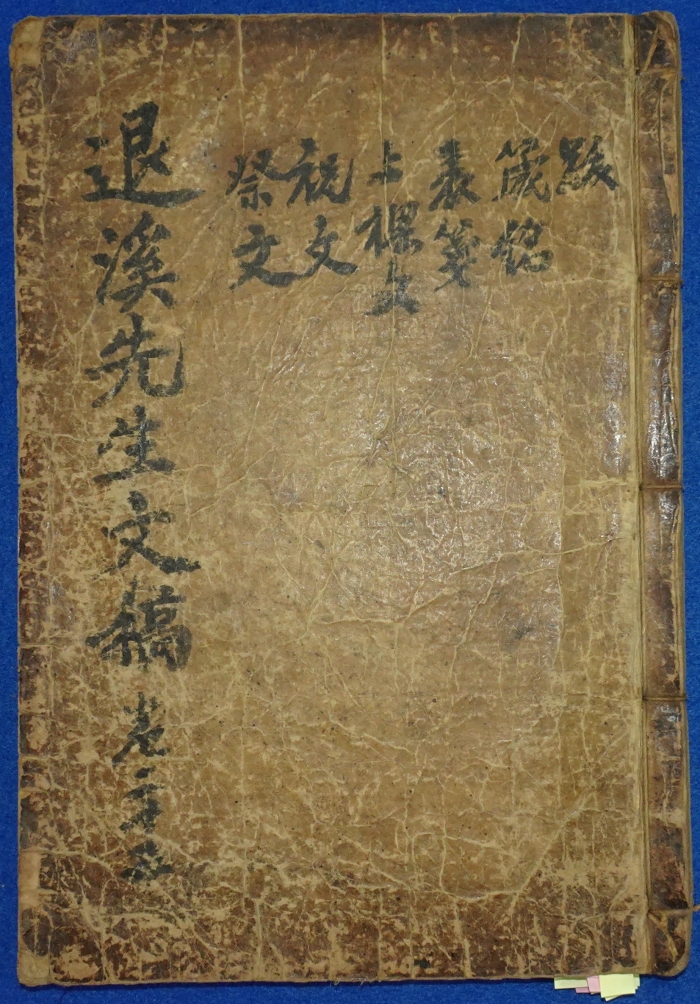 跋
箴銘
表箋
上樑文
祝文
祭文
退溪先生文稿 卷二十五